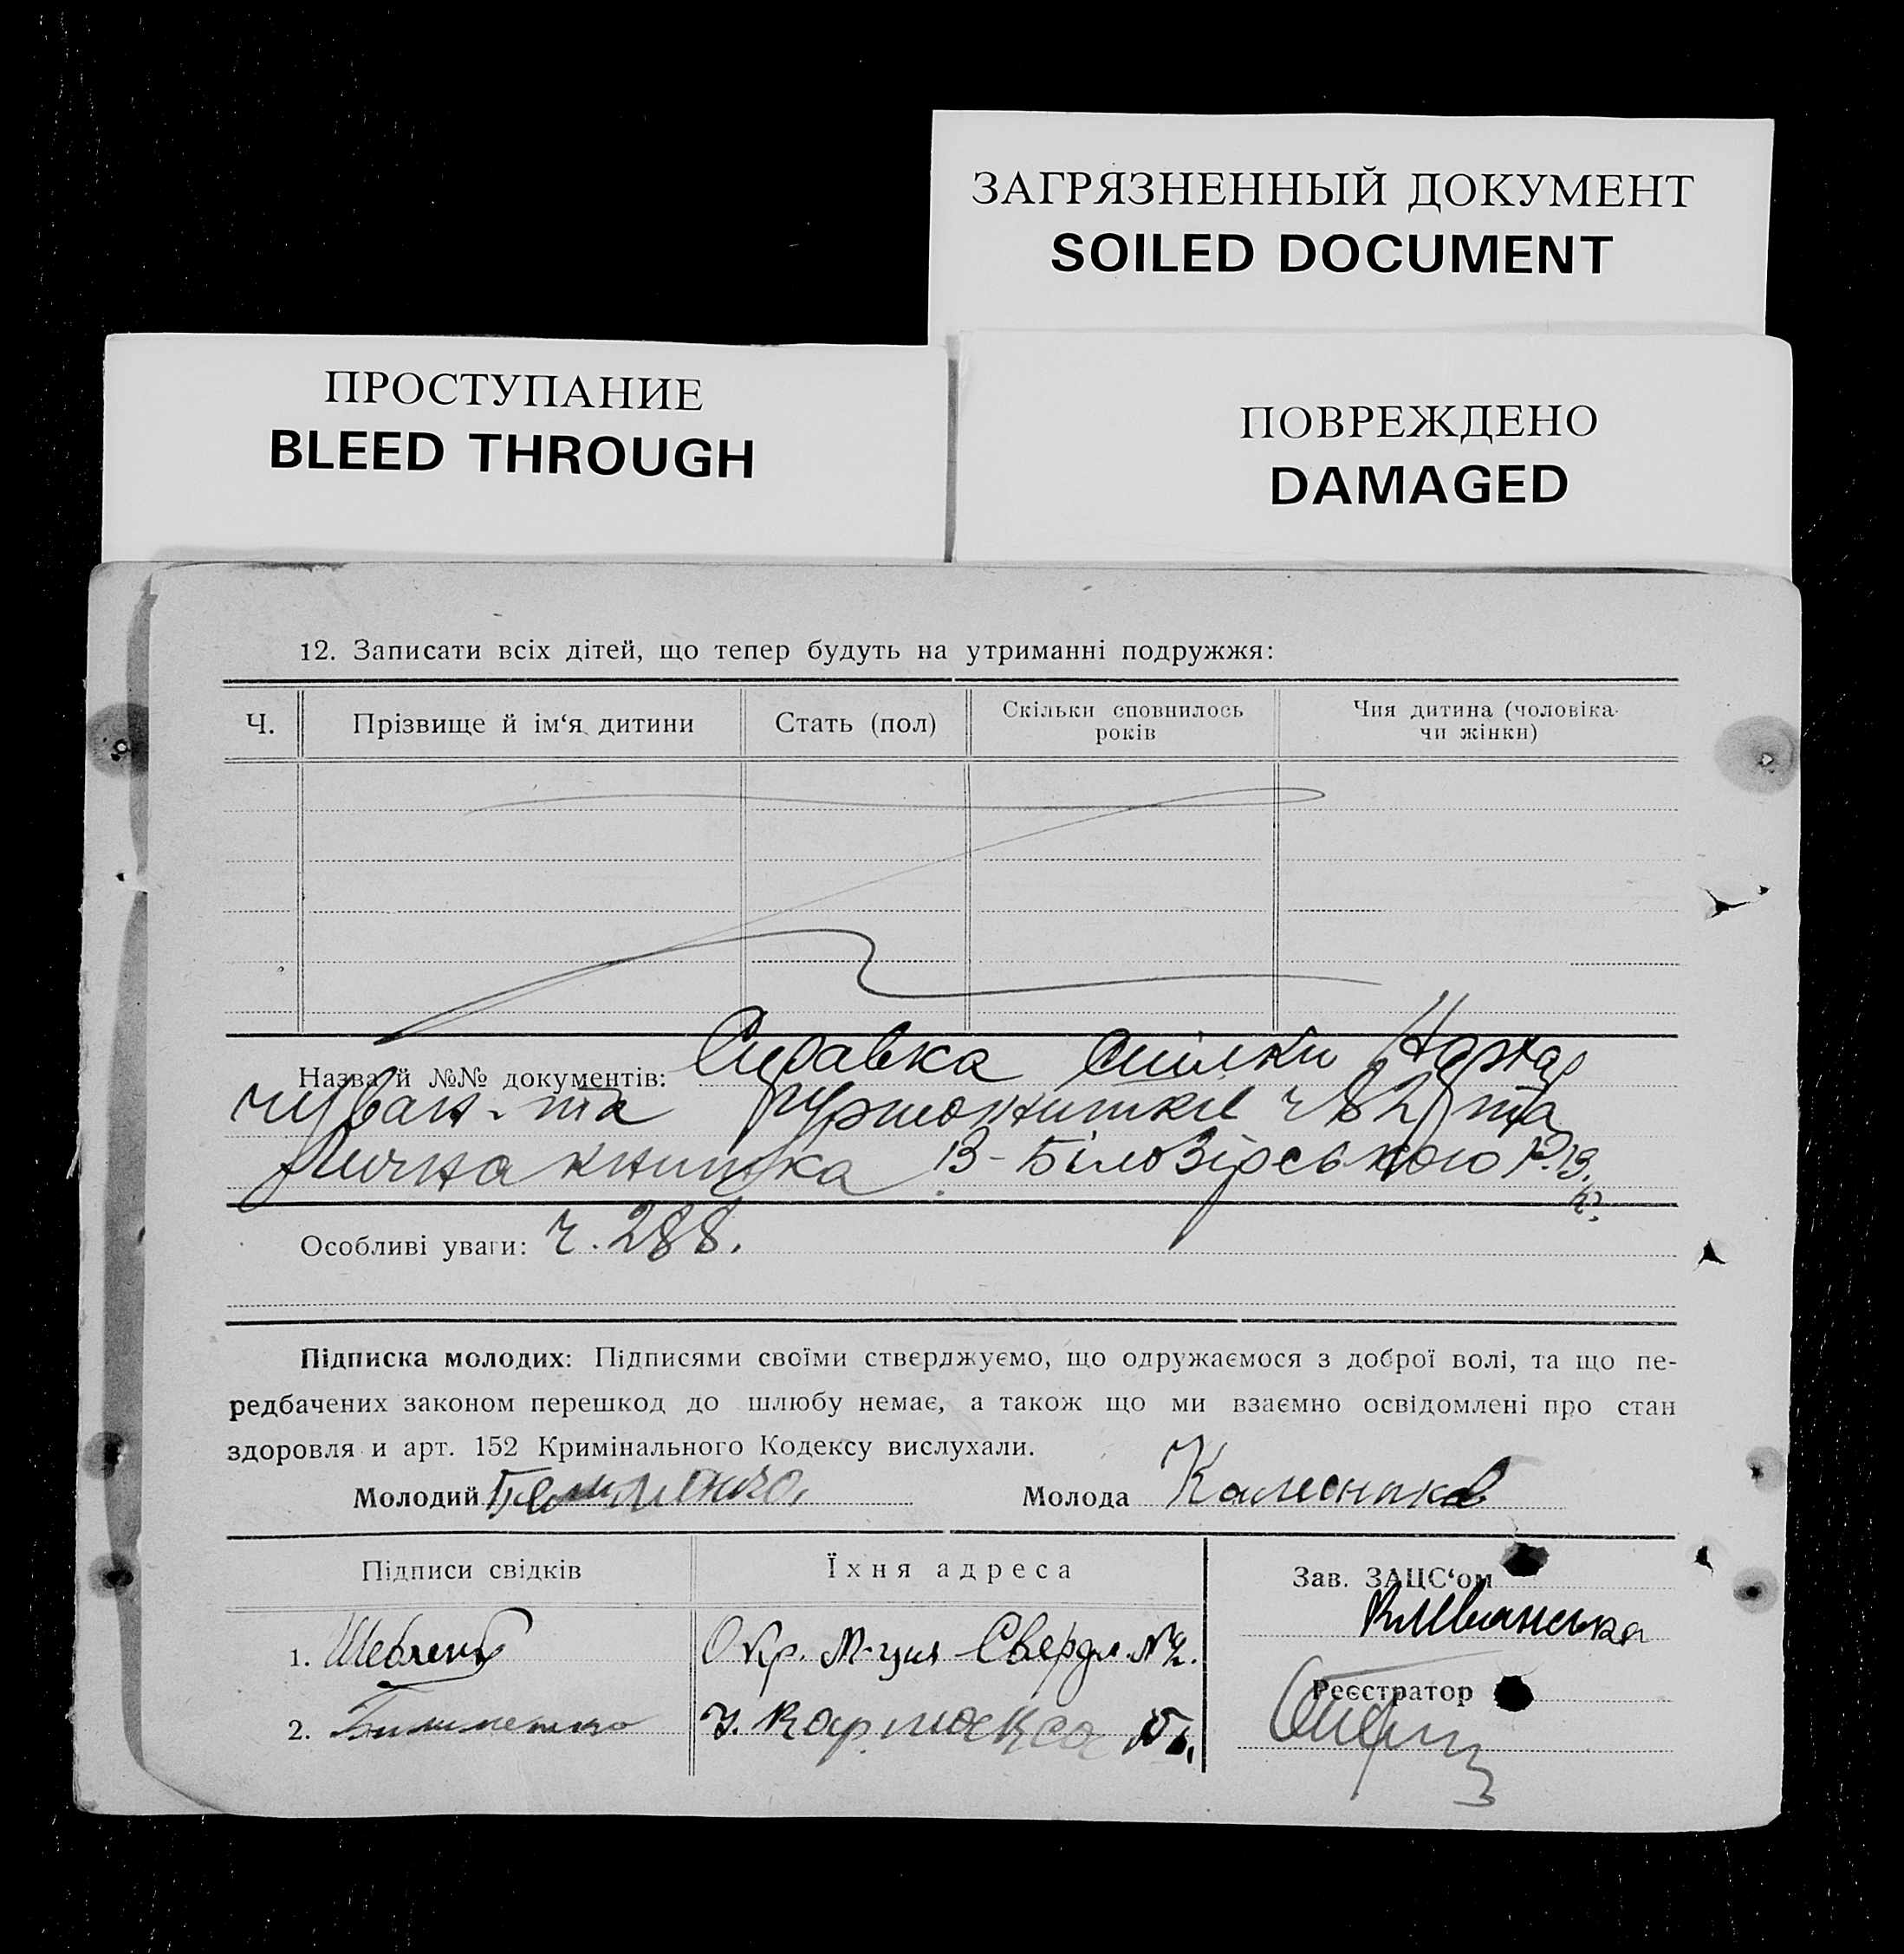 ЗАГРЯЗНЕННЫЙ ДОКУМЕНТ
SOILED DOCUMENT
ПРОСТУПАНИЕ
BLEED THROUGH
ПОВРЕЖДЕНО
DAMAGED
12. Записати всіх дітей, що тепер будуть на утриманні подружжя:
Ч.
Прізвище й ім‘я дитини
Стать (пол)
Скільки сповнилось
років
Чия дитина (чоловіка
чи жінки)
Назва й №№ документів: Справка спілки Нархар
чуван. та гуртожитків ч 82 та
Лична книжка В-Білозірського Р.В.
К.
Особливі уваги: ч. 288.
Підписка молодих: Підписями своїми стверджуємо, що одружаємося з доброї волі, та що пе-
редбачених законом перешкод до шлюбу немає, а також що ми взаємно освідомлені про стан
здоровля и арт. 152 Кримінального Кодексу вислухали.
Молодий
Молода Калеснікова
Підписи свідків
Їхня адреса
Зав. ЗАЦС‘ом
1. Шевченко Окр. М-ция Свердл. №
2. К. Маркса
Реєстратор